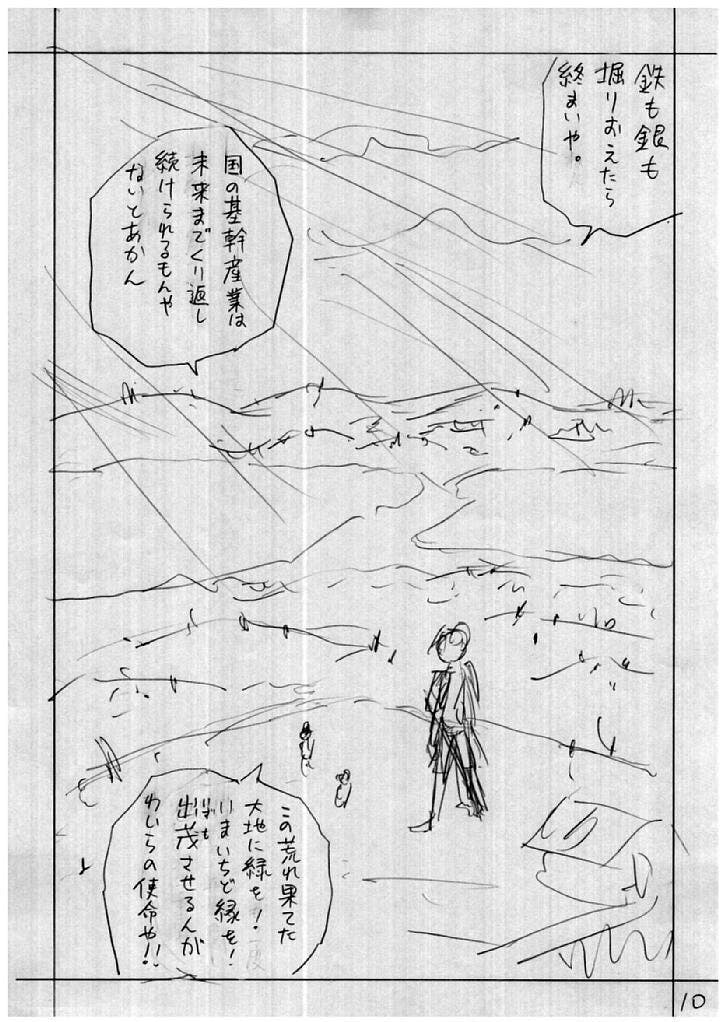 鉄も銀も
掘りおえたら
終まいや。
国の基幹産業は
未来までくり返し
続けられるもんや
ないとあかん
この荒れ果てた
大地に緑を!
いまいちど緑を!
出茂させるんが
わいらの使命や!!
10